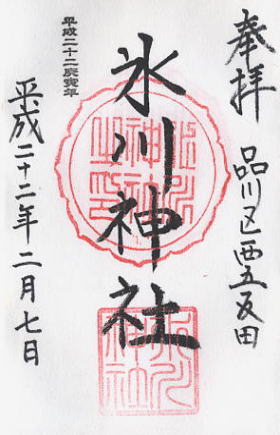 奉拝
品川区西五反田
氷川神社
平成二十二庚寅年
平成二十二年二月七日
氷川神社